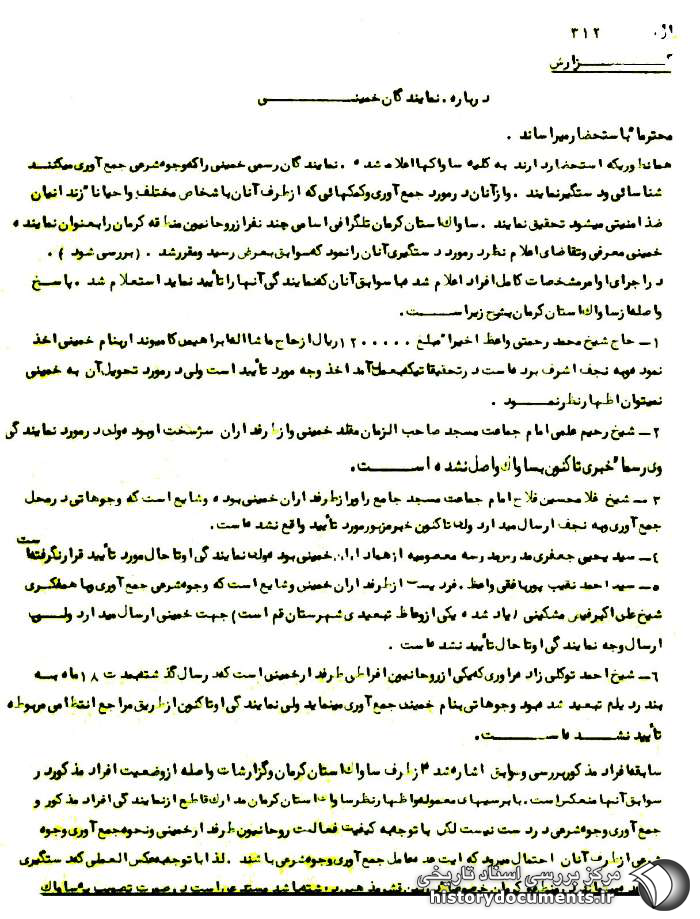 ۳۱۲
گزارش
درباره نمایندگان خمینی
محترما باستحضار میرساند .
همانطوریکه استحضار دارند به کلیه ساواکها اعلام شده . نمایندگان رسمی خمینی را که وجوه شرعی جمع آوری میکنند
شناسائی ودستگیر نمایند . واز آنان در مورد جمع آوری وکمکهائی که ازطرف آنان باشخاص مختلف واحیانا زندانیان
ضد امنیتی میشود تحقیق نمایند . ساواک استان کرمان تلگرافی اسامی چند نفر از روحانیون منطقه کرمان را بعنوان نماینده
خمینی معرفی وتقاضای اعلام نظر در مورد دستگیری آنان را نمود که سوابق بعرض رسید ومقرر شد . (بررسی شود ) .
در اجرای اوامر مشخصات کامل افراد اعلام شده با سوابق آنان که نمایندگی آنها را تأیید نماید استعلام شد . پاسخ
واصله از ساواک استان کرمان بشرح زیر است .
۱ــ حاج شیخ محمد رحمتی واعظ اخیرا مبلغ ۱۲۰۰۰۰۰ ریال از حاج ماشااله ابراهیمی کامیوندار بنام خمینی اخذ
نموده وبه نجف اشرف برده است در تحقیقاتیکه بعمل آمد اخذ وجه مورد تأیید است ولی در مورد تحویل آن به خمینی
نمیتوان اظهار نظر نمود .
۲ــ شیخ رحیم علمی امام جماعت مسجد صاحب الزمان مقلد خمینی واز طرفداران سرسخت او بوده ولی در مورد نمایندگی
وی رسما خبری تاکنون بساواک واصل نشده است .
۳ــ شیخ غلامحسین فلاح امام جماعت مسجد جامع راور از طرفداران خمینی بوده وشایع است که وجوهاتی در محل
جمع آوری وبه نجف ارسال میدارد ولی تاکنون خبر مزبور مورد تأیید واقع نشده است .
۴ــ سید یحیی جعفری مدرس مدرسه معصومیه از هواداران خمینی بوده ولی نمایندگی او تا حال مورد تأیید قرار نگرفته است
۵ــ سید احمد نقیب پور بافقی واعظ . فردیست از طرفداران خمینی وشایع است که وجوه شرعی جمع آوری وبا همفکری
شیخ علی اکبر فیض مشکینی (یاد شده یکی از وعاظ تبعیدی شهرستان قم است) جهت خمینی ارسال میدارد ولی
ارسال وجه نمایندگی او تا حال تأیید نشده است .
۶ــ شیخ احمد توکلی زاده راوری که یکی از روحانیون افراطی طرفدار خمینی است که در سال گذشته بمدت ۱۸ ماه به
بندر دیلم تبعید شده بود وجوهاتی بنام خمینی جمع آوری مینماید ولی نمایندگی او تاکنون از طریق مراجع انتظامی مربوطه
تأیید نشده است .
سابقه افراد مذکور بررسی وسوابق اشاره شده از طرف ساواک استان کرمان وگزارشات واصله از وضعیت افراد مذکور در
سوابق آنها منعکس است . با بررسیهای معموله واظهار نظر ساواک استان کرمان مدارک قاطع از نمایندگی افراد مذکور و
جمع آوری وجوه شرعی در دست نیست لکن با توجه به کیفیت فعالیت روحانیون طرفدار خمینی ونحوه جمع آوری وجوه
شرعی از طرف آنان احتمال میرود که این عده عامل جمع آوری وجوه شرعی باشند . لذا با توجه به عکس العملی که دستگیری
مرکز بررسی اسناد تاریخی
historydocuments.ir